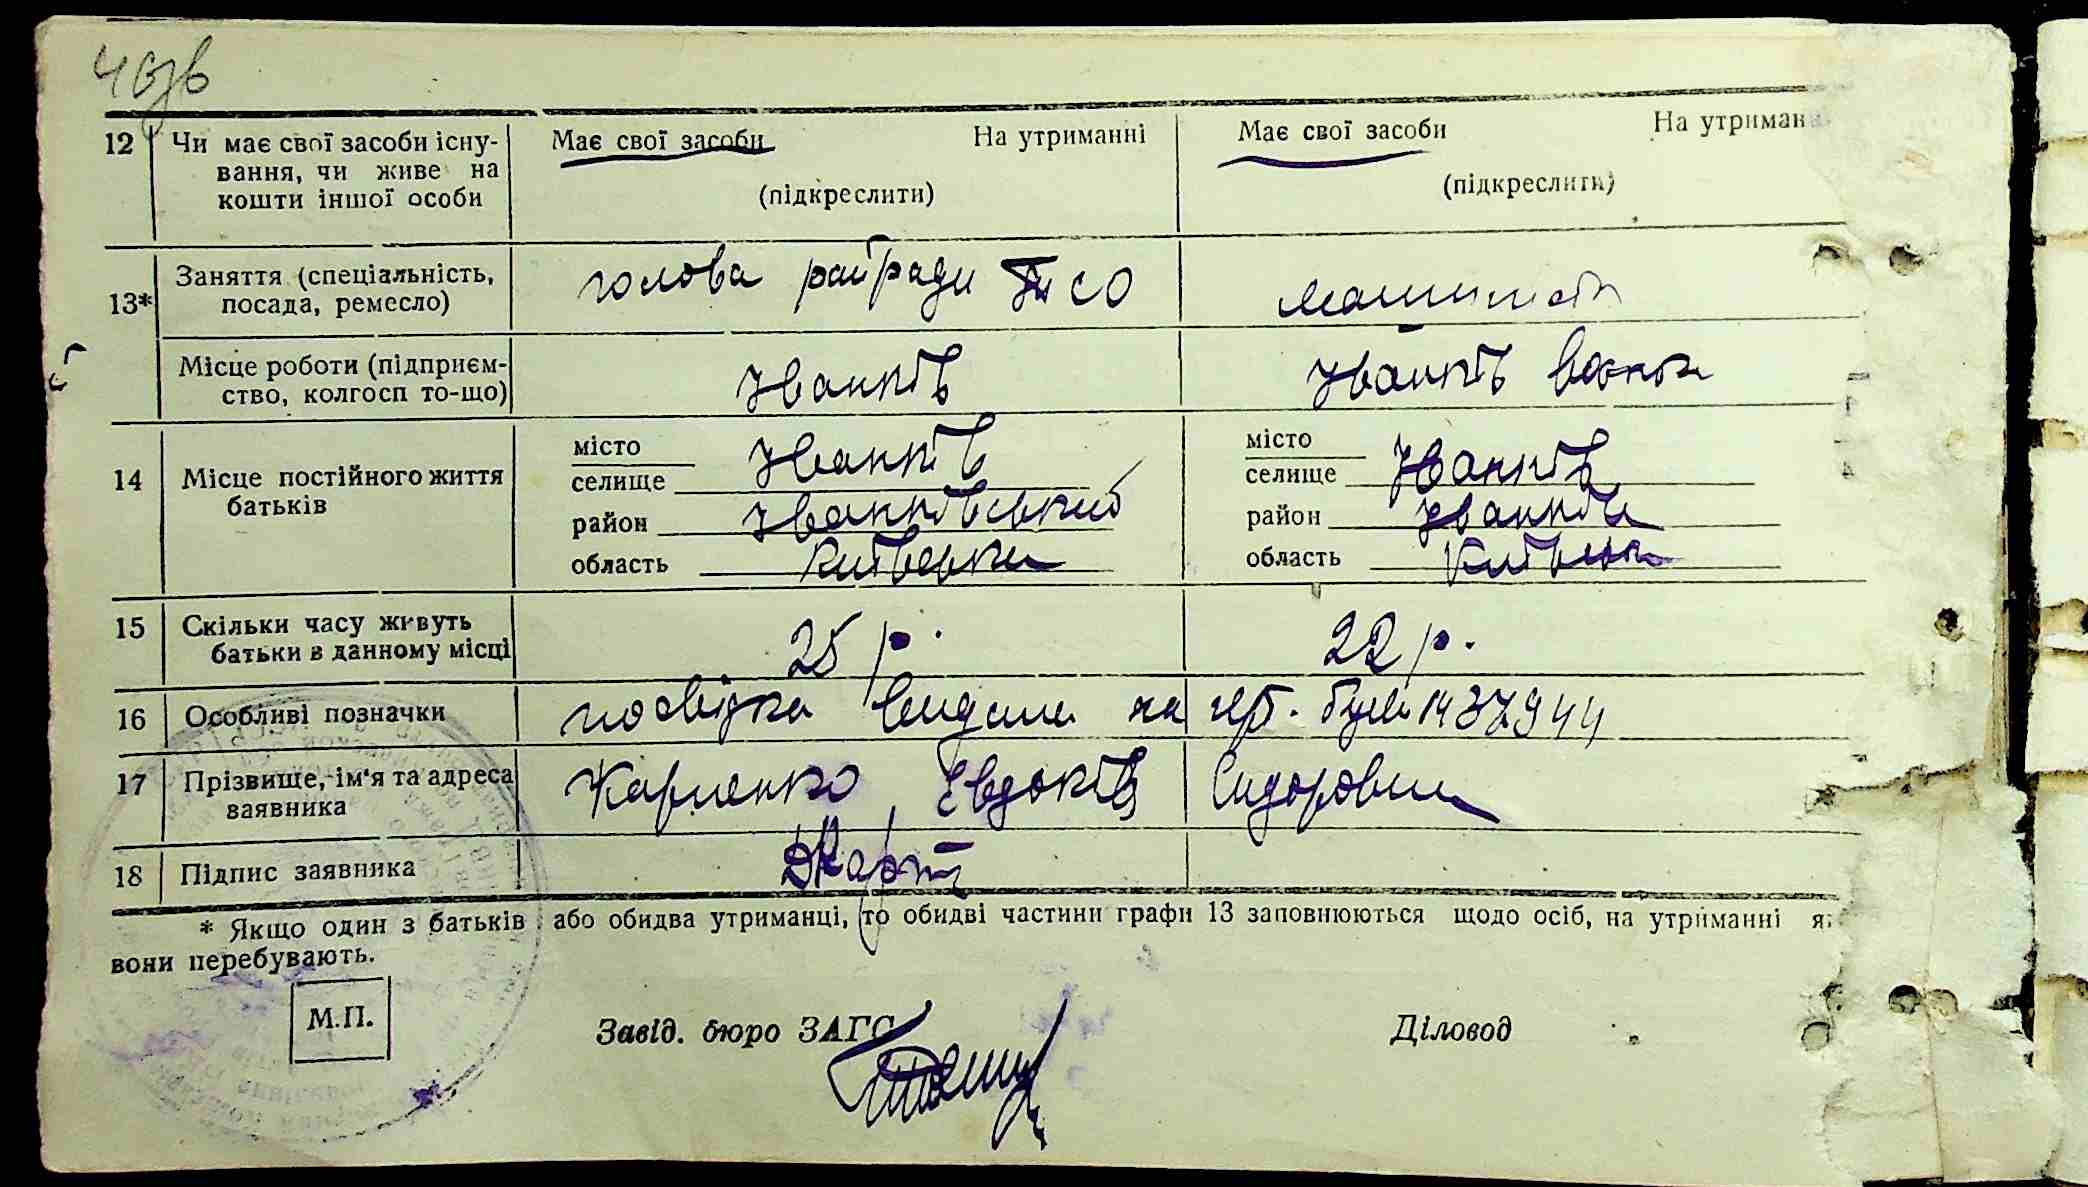 40зв
12 Чи має свої засоби існу- Має свої засоби На утриманні Має свої засоби На утриман
вання, чи живе на
кошти іншої особи (підкреслити) (підкреслити)
13* Заняття (спеціальність, голова райради ТСО машиніст
посада, ремесло)
Місце роботи (підприєм- Іванків Іванків
ство, колгосп то-що)
14 Місце постійного життя місто Іванків місто Іванків
батьків селище селище
район Іванківський район Іванків
область Київська область Київська
15 Скільки часу живуть 25 р. 22 р.
батьки в данному місці
16 Особливі позначки посвідка видана на герб. бум 1437944
17 Прізвище, ім'я та адреса Карпенко, Евдоким Сидорович
заявника
18 Підпис заявника
* Якщо один з батьків або обидва утриманці, то обидві частини графи 13 заповнюються щодо осіб, на утриманні я
вони перебувають.
М.П. Завід. бюро ЗАГС Діловод